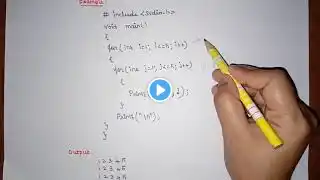 Example
# include <stdio.h>
void main()
{
for(int i=1; i<=5; i++)
{
for(int j=1; j<=5; j++)
{
Printf( );
}
Printf("\n");
}
}
Output
1 2 3 4 5
1 2 3 4 5
1 2 3 4 5